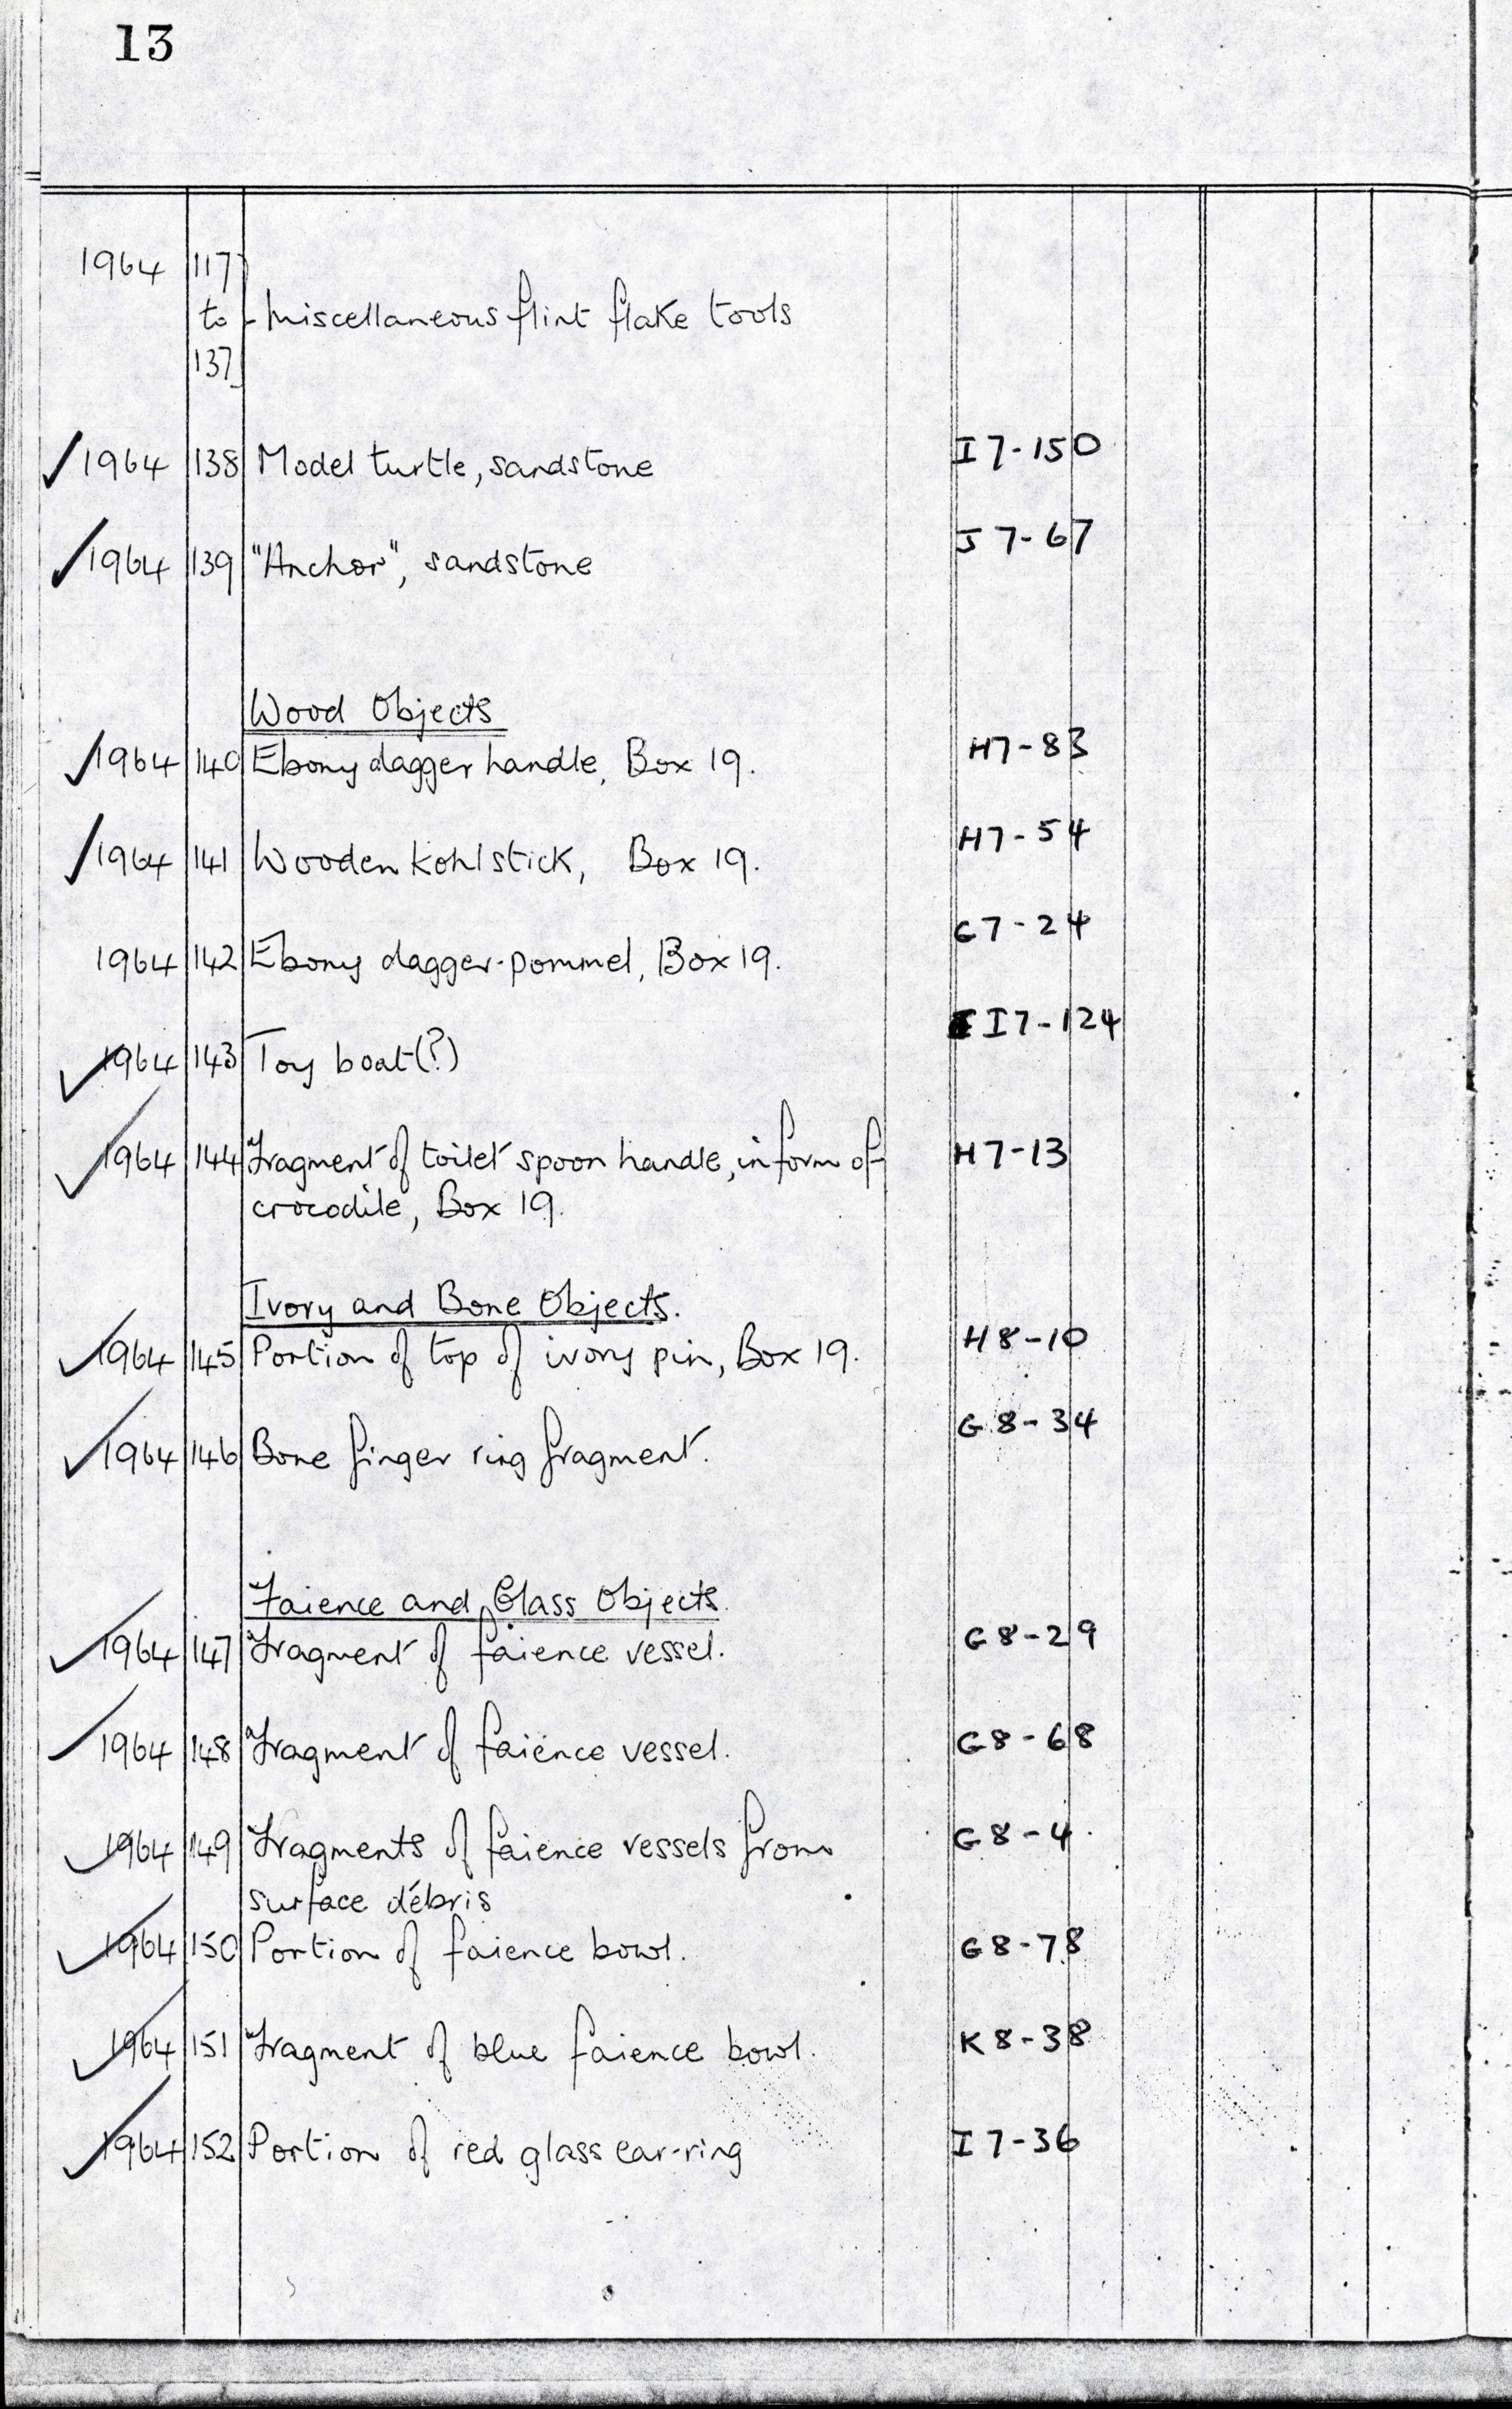 13
1964 117
to Miscellaneous flint flake tools
137
✓ 1964 138 Model turtle, sandstone I7-150
✓ 1964 139 "Anchor", sandstone J7-67
Wood Objects
✓ 1964 140 Ebony dagger handle, Box 19. H7-83
✓ 1964 141 Wooden kohl stick, Box 19. H7-54
1964 142 Ebony dagger-pommel, Box 19. G7-24
✓ 1964 143 Toy boat (?) I7-124
✓ 1964 144 Fragment of toilet spoon handle, in form of H7-13
crocodile, Box 19.
Ivory and Bone Objects.
✓ 1964 145 Portion of top of ivory pin, Box 19. H8-10
✓ 1964 146 Bone finger ring fragment. G8-34
Faience and Glass Objects.
✓ 1964 147 Fragment of faience vessel. G8-29
✓ 1964 148 Fragment of faience vessel. G8-68
✓ 1964 149 Fragments of faience vessels from G8-4
surface débris
✓ 1964 150 Portion of faience bowl. G8-78
✓ 1964 151 Fragment of blue faience bowl. K8-38
✓ 1964 152 Portion of red glass ear-ring I7-36